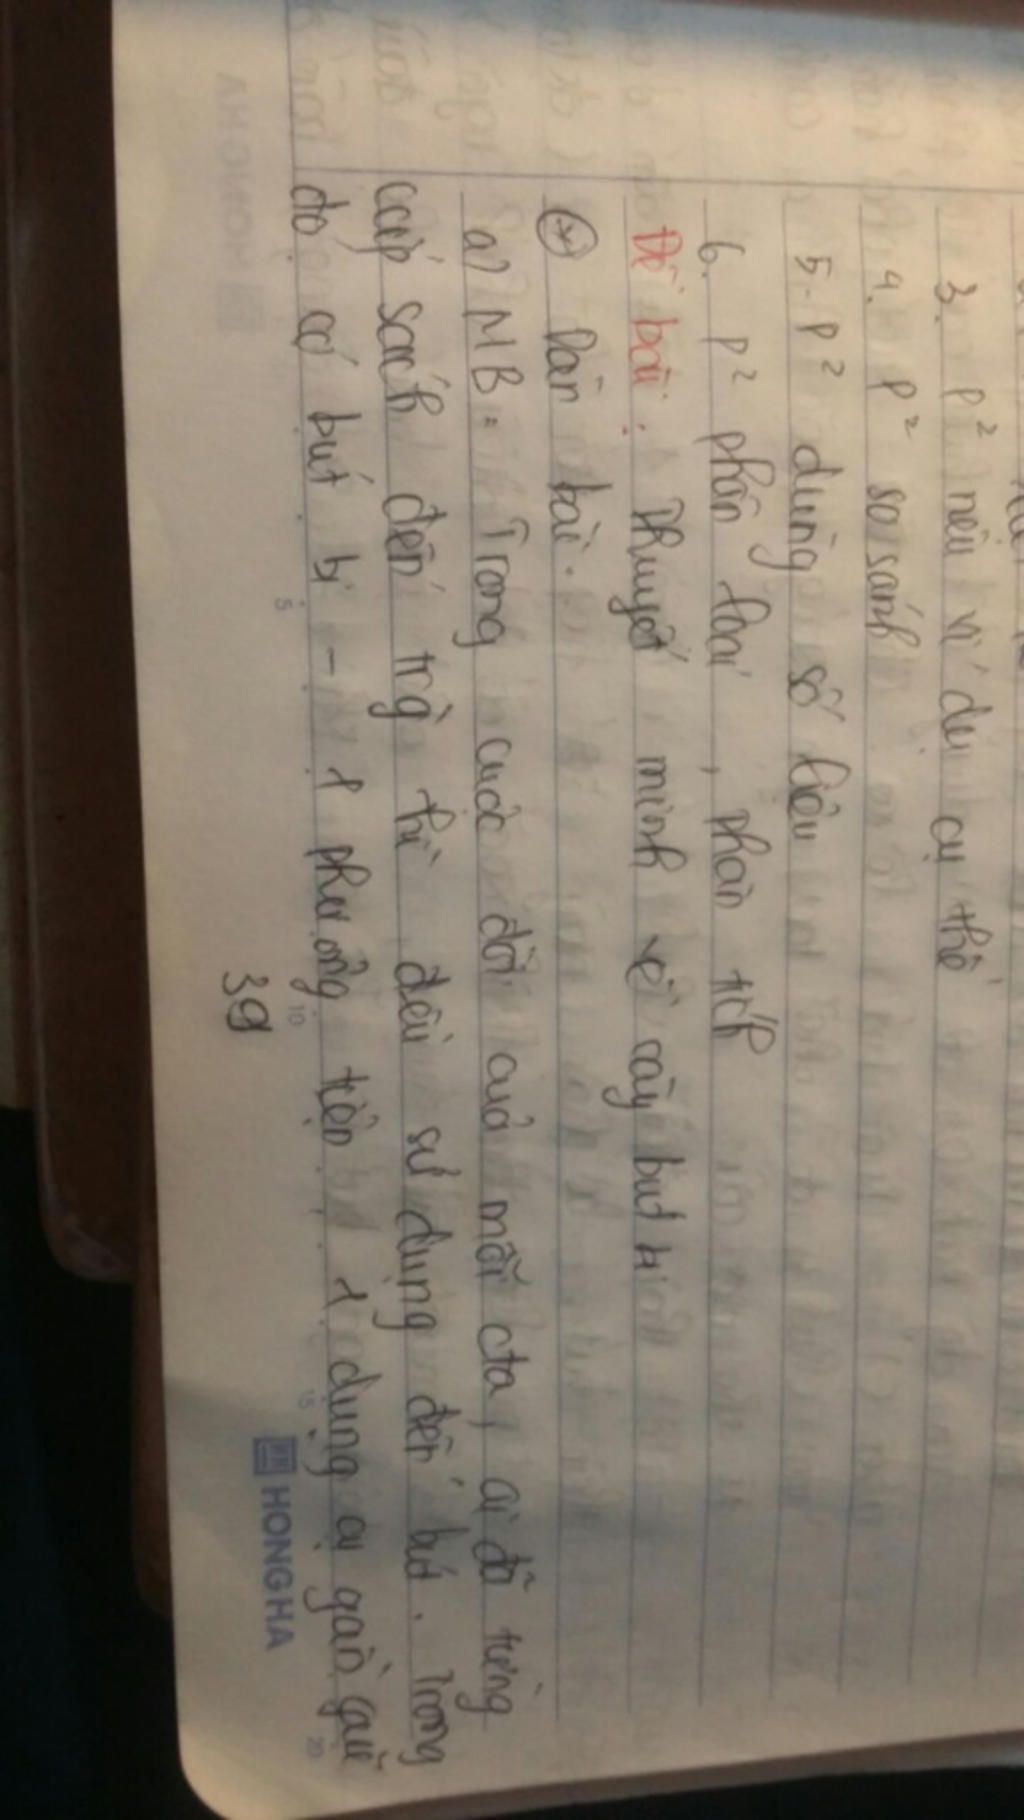 3. P² nêu ví dụ cụ thể
4. P² so sánh
5. P² dùng số liệu
6. P² phân loại, phân tích
Đề bài: Thuyết minh về cây bút bi
* Dàn bài.
a) MB: Trong cuộc đời của mỗi cta, ai đã từng
cắp sách đến trg thì đều sử dụng đến bút. Trong
đó có bút bi - 1 phương tiện, 1 dụng cụ gần gũi
39
HONG HA
5
10
15
20